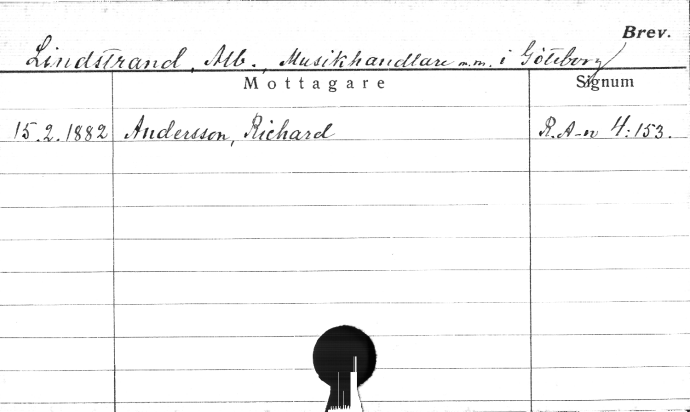 Brev.
Lindstrand, Alb., Musikhandlare m.m. i Göteborg
Mottagare Signum
15.2.1882 Andersson, Richard R.A-n 4:153.